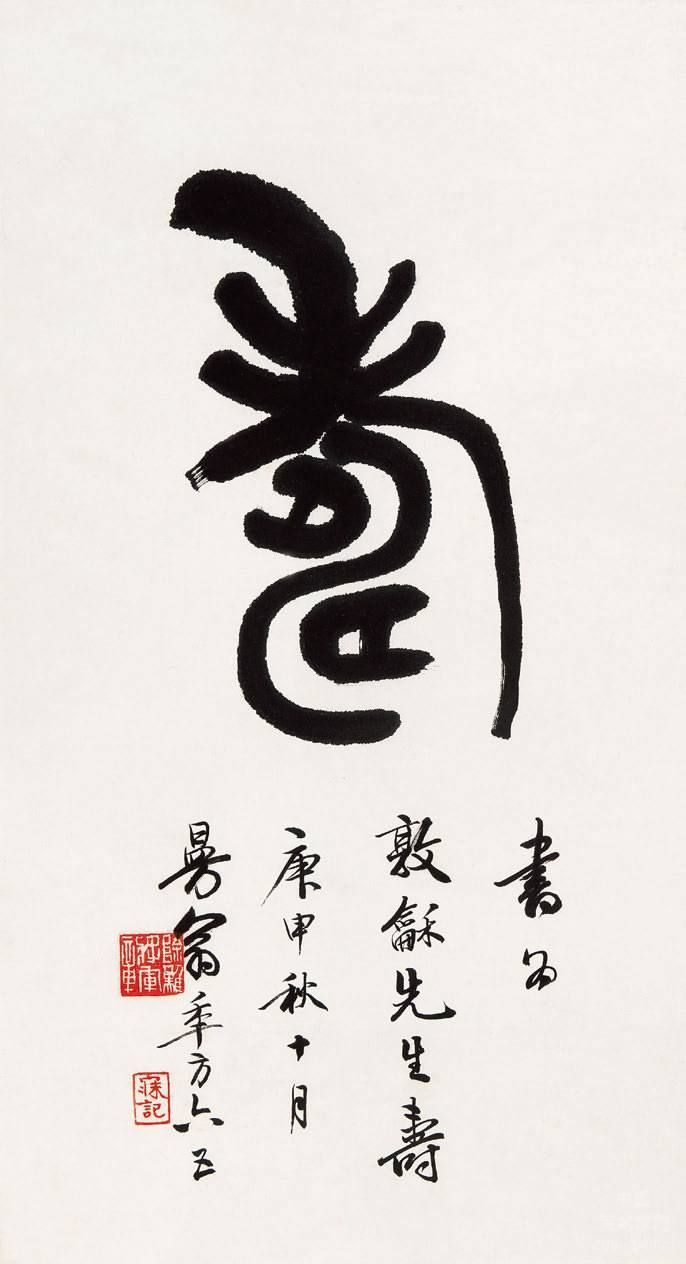 壽
書為
敦龢先生壽
庚申秋十月
曼翁年方六五